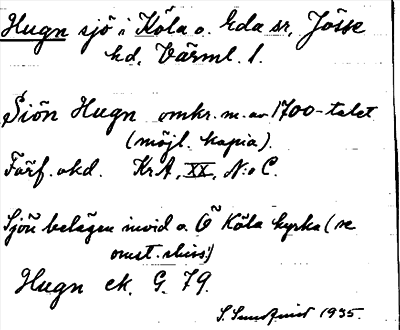 Hugn sjö i Köla o. Eda sr, Jösse
hd, Värml. l.
Siön Hugn omkr. m. av 1700-talet
(möjl. kopia).
Förf. okd. KrA, XX, N:o C.
Sjön belägen invid o. Ö Köla kyrka (se
omst. skiss)
Hugn ek. G. 79.
S. 1935.